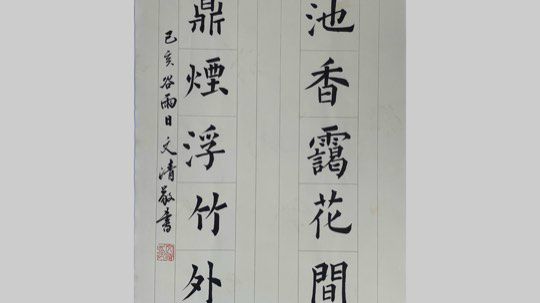 池香靄花間
鼎煙浮竹外
己亥谷雨日文清敬書